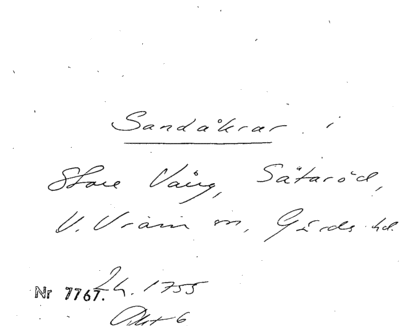 Sandåkrar i
Store Vång, Sätaröd,
V. Vram sn, Gärds hd.
2 h. 1755
Nr 7767.
Akt 6